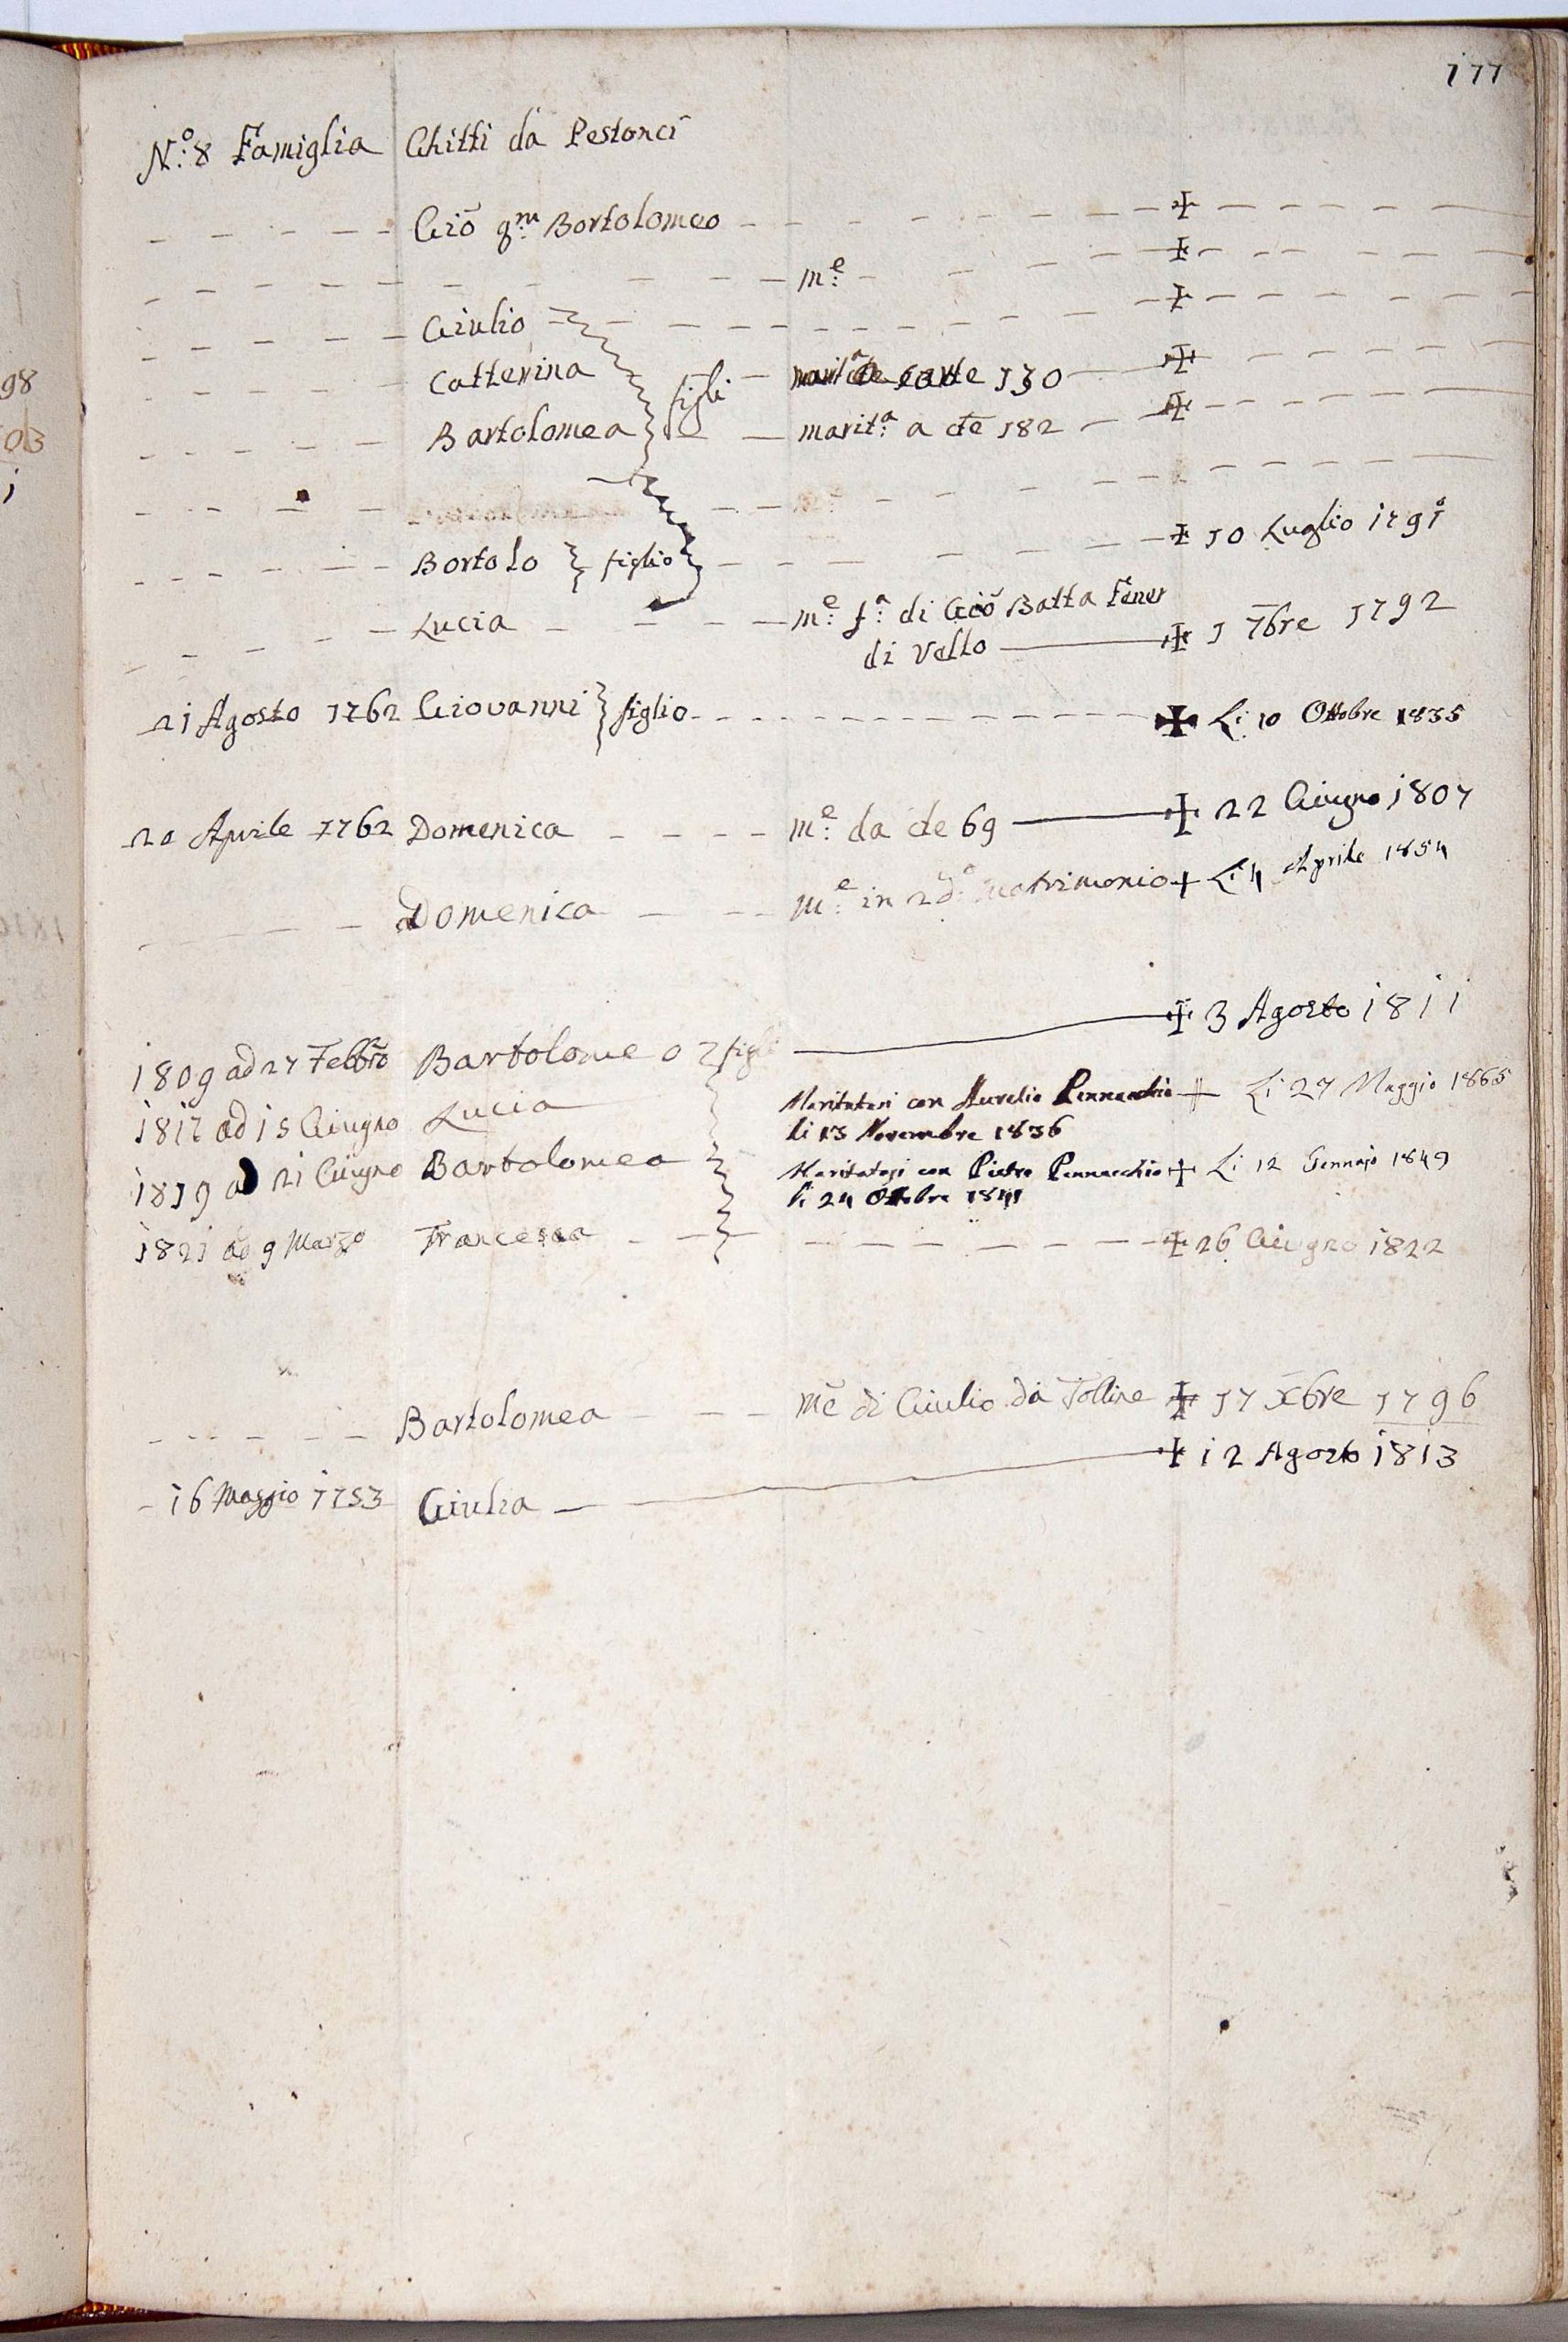 177
N.º 8 Famiglia Ghitti da Pestonci
Giō q.m Bortolomeo
m.e
Giulio
Catterina figli carte 130
Bartolomea marit.a a cte 182
Bortolo figlio 10 Luglio 1791
Lucia m.e f.a di Giō Batta Fener
di Vello 1 7bre 1792
21 Agosto 1762 Giovanni figlio Li 10 Ottobre 1835
20 Aprile 1762 Domenica m.e da cte 69 22 Giugno 1807
Domenica m.e in 2do Matrimonio Li 4 Aprile 1854
1809 ad 27 Febbro Bartolomeo figli 3 Agosto 1811
1817 ad 15 Giugno Lucia Maritatasi con Aurelio Pennacchio Li 27 Maggio 1865
li 13 Novembre 1836
1819 ad 21 Giugno Bartolomea Maritatasi con Pietro Pennacchio Li 12 Gennajo 1849
li 24 Ottobre 1841
1821 ad 9 Marzo Francesca 26 Giugno 1822
Bartolomea mē di Giulio da Tolline 17 Xbre 1796
16 Maggio 1753 Giulia 12 Agosto 1813
98
03
1